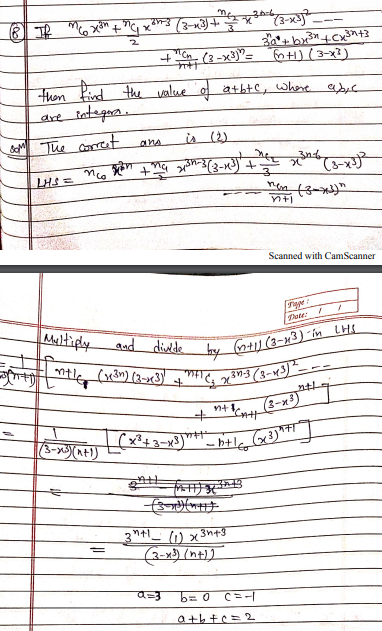 ⑧ If ⁿC₀ x³ⁿ + ⁿC₁/2 x³ⁿ⁻³ (3-x³) + ⁿC₂/3 x³ⁿ⁻⁶ (3-x³)² ---
+ ⁿCₙ/(n+1) (3-x³)ⁿ = (3ⁿa + bx³ⁿ + cx³ⁿ⁺³)/((n+1)(3-x³))
then find the value of a+b+c, where a,b,c
are integers.
The correct ans is (2)
LHS = ⁿC₀ x³ⁿ + ⁿC₁/2 x³ⁿ⁻³ (3-x³)¹ + ⁿC₂/3 x³ⁿ⁻⁶ (3-x³)²
---- ⁿCₙ/(n+1) (3-x³)ⁿ
Scanned with CamScanner
Page:
Date: / /
Multiply and divide by (n+1)(3-x³) in LHS
[ ⁿ⁺¹C₁ (x³ⁿ)(3-x³) + ⁿ⁺¹C₂ x³ⁿ⁻³ (3-x³)² ---
+ ⁿ⁺¹Cₙ₊₁ (3-x³)ⁿ⁺¹ ]
= 1/((3-x³)(n+1)) [ (x³+3-x³)ⁿ⁺¹ - ⁿ⁺¹C₀ (x³)ⁿ⁺¹ ]
=
= (3ⁿ⁺¹ - (1) x³ⁿ⁺³)/((3-x³)(n+1))
a=3 b=0 c=-1
a+b+c=2